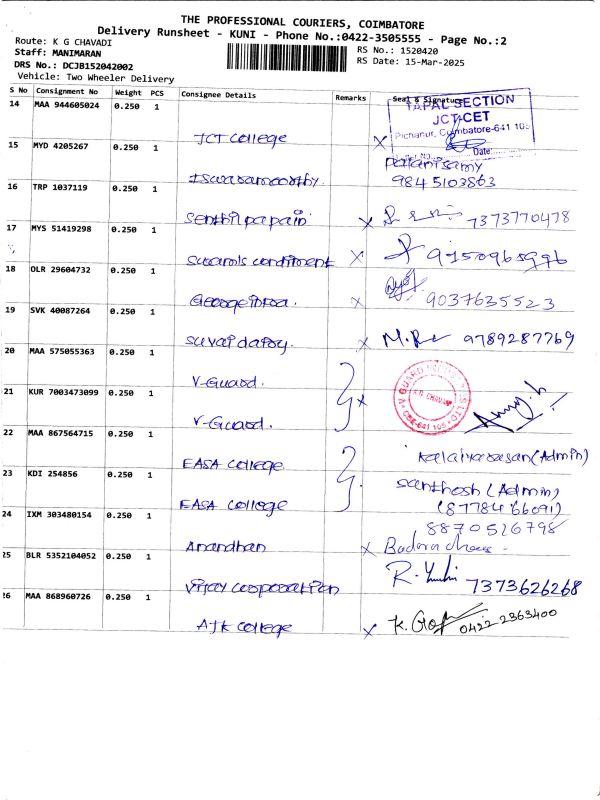 THE PROFESSIONAL COURIERS, COIMBATORE
Delivery Runsheet - KUNI - Phone No.:0422-3505555 - Page No.:2
Route: K G CHAVADI
RS No.: 1520420
Staff: MANIMARAN
RS Date: 15-Mar-2025
DRS No.: DCJB152042002
Vehicle: Two Wheeler Delivery
S No Consignment No Weight PCS Consignee Details Remarks Seal & Signature
14 MAA 944605024 0.250 1 JCT College x
TAPAL SECTION
JCT-CET
Pichanur, Coimbatore-641 105
Date:
15 MYD 4205267 0.250 1
Palanisamy
9845103863
16 TRP 1037119 0.250 1 Senthil papain x 7373770478
17 MYS 51419298 0.250 1 Swamis condiment x 9150965996
18 OLR 29604732 0.250 1 x 9037635523
19 SVK 40087264 0.250 1 Suvai dairy. x 9789287769
20 MAA 575055363 0.250 1 V-Guard.
21 KUR 7003473099 0.250 1 V-Guard. x
V GUARD
K.G. CHAVADI
CBE-641 105
22 MAA 867564715 0.250 1 EASA College
Kalaiyarasan (Admin)
23 KDI 254856 0.250 1 EASA College
Santhosh (Admin)
(8778466091)
24 IXM 303480154 0.250 1 Anandhan x
8870526798
25 BLR 5352104052 0.250 1 Vijay corporation 7373626268
26 MAA 868960726 0.250 1 AJK College x 0422 2363400